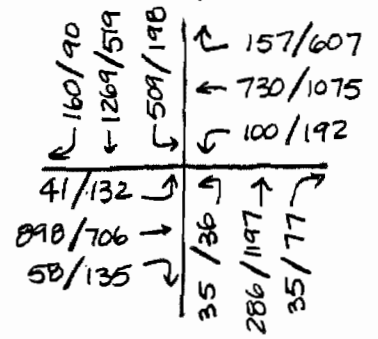 160/90
1269/519
509/198
157/607
730/1075
100/192
41/132
898/706
58/135
35/36
286/1197
35/77